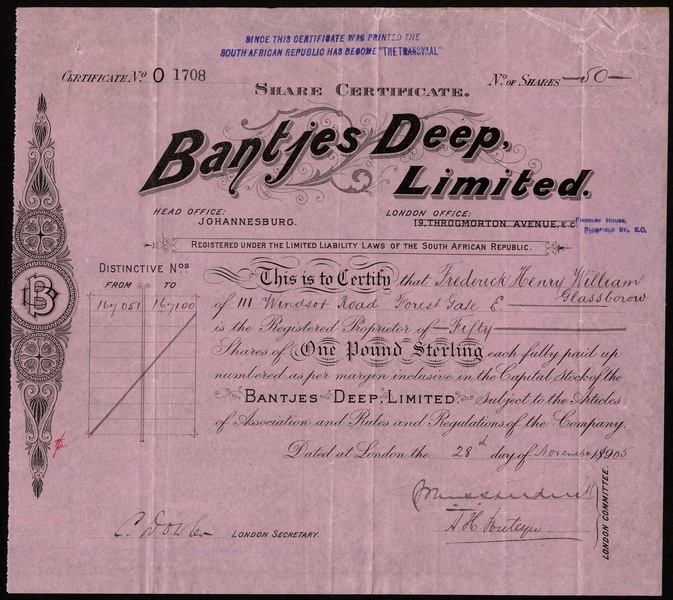 SINCE THIS CERTIFICATE WAS PRINTED THE
SOUTH AFRICAN REPUBLIC HAS BECOME "THE TRANSVAAL"
CERTIFICATE No. O 1708
No. OF SHARES —50—
SHARE CERTIFICATE.
Bantjes Deep,
Limited.
HEAD OFFICE:
JOHANNESBURG.
LONDON OFFICE:
19, THROGMORTON AVENUE, E.C.
FINSBURY HOUSE,
BLOMFIELD ST., E.C.
REGISTERED UNDER THE LIMITED LIABILITY LAWS OF THE SOUTH AFRICAN REPUBLIC.
DISTINCTIVE Nos.
FROM TO
167051 167100
BD
This is to Certify that Frederick Henry William
Glassborow
of 111 Windsor Road Forest Gate E
is the Registered Proprietor of — Fifty —
Shares of One Pound Sterling each fully paid up
numbered as per margin inclusive in the Capital Stock of the
BANTJES DEEP, LIMITED. Subject to the Articles
of Association and Rules and Regulations of the Company.
Dated at London the 28th day of November 1905
LONDON COMMITTEE.
LONDON SECRETARY.